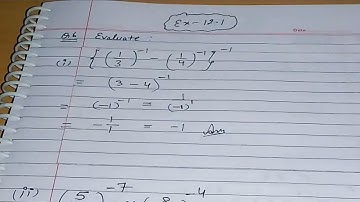 Ex-12.1
Q6 Evaluate :
(i) {(1/3)^-1 - (1/4)^-1}^-1
= (3 - 4)^-1
= (-1)^-1 = 1/(-1)^1
= -1/1 = -1 Ans
(ii) (5 )^-7 (8 )^-4